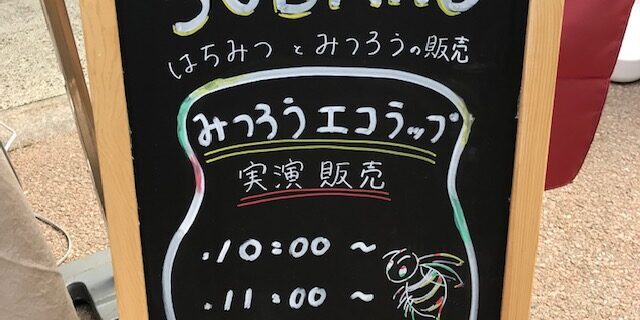 はちみつ と みつろうの販売
みつろうエコラップ
実演 販売
・10:00 ～
・11:00 ～